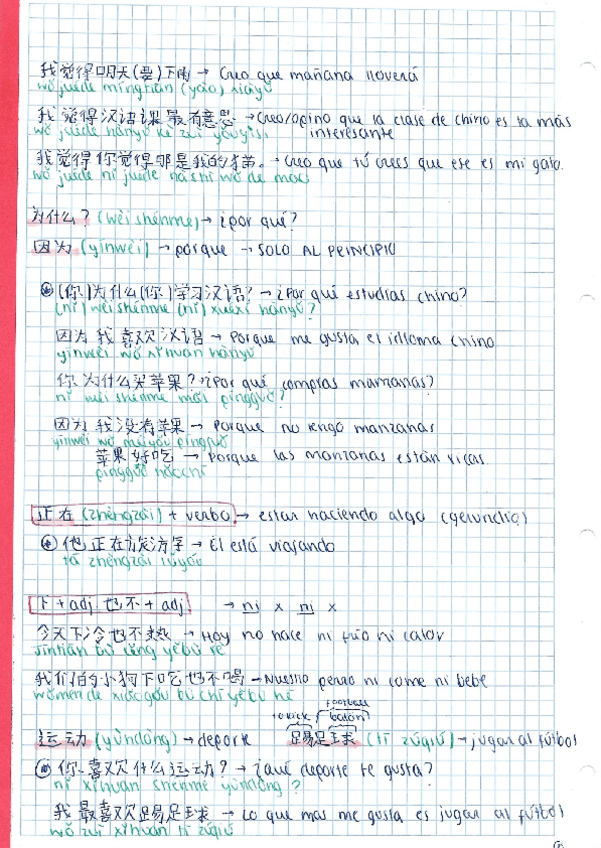 我觉得明天(要)下雨 → Creo que mañana lloverá
wǒ juéde míngtiān (yào) xiàyǔ
我觉得汉语课最有意思 → Creo/opino que la clase de chino es la más interesante
wǒ juéde hànyǔ kè zuì yǒuyìsi
我觉得你觉得那是我的猫。→ Creo que tú crees que ese es mi gato.
wǒ juéde nǐ juéde nà shì wǒ de māo
为什么? (wèishénme) → ¿por qué?
因为 (yīnwèi) → porque → SOLO AL PRINCIPIO
(你)为什么(你)学习汉语? → ¿Por qué estudias chino?
(nǐ) wèishénme (nǐ) xuéxí hànyǔ?
因为我喜欢汉语 → Porque me gusta el idioma chino
yīnwèi wǒ xǐhuan hànyǔ
你为什么买苹果? ¿Por qué compras manzanas?
nǐ wèishénme mǎi píngguǒ?
因为我没有苹果 → Porque no tengo manzanas
yīnwèi wǒ méiyǒu píngguǒ
苹果好吃 → Porque las manzanas están ricas
píngguǒ hǎochī
正在 (zhèngzài) + verbo → estar haciendo algo (gerundio)
他正在 → Él está viajando
tā zhèngzài lǚyóu
+ adj 也不 + adj → ni x ni x
今天下冷也不热 → Hoy no hace ni frío ni calor
jīntiān bù lěng yě bù rè
我们的小狗下吃也不喝 → Nuestro perro ni come ni bebe
wǒmen de xiǎogǒu bù chī yě bù hē
football
to kick balón
运动 (yùndòng) → deporte 踢足球 (tī zúqiú) → jugar al fútbol
你喜欢什么运动? → ¿qué deporte te gusta?
nǐ xǐhuan shénme yùndòng?
我最喜欢踢足球 → Lo que más me gusta es jugar al fútbol
wǒ zuì xǐhuan tī zúqiú